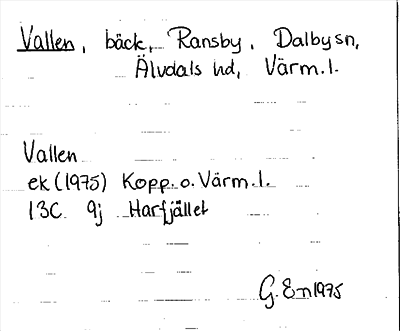 Vallen, bäck, Ransby, Dalby sn,
Älvdals hd, Värm.l.
Vallen
ek (1975) Kopp. o. Värm.l.
13C 9j Harfjället
G. En 1975